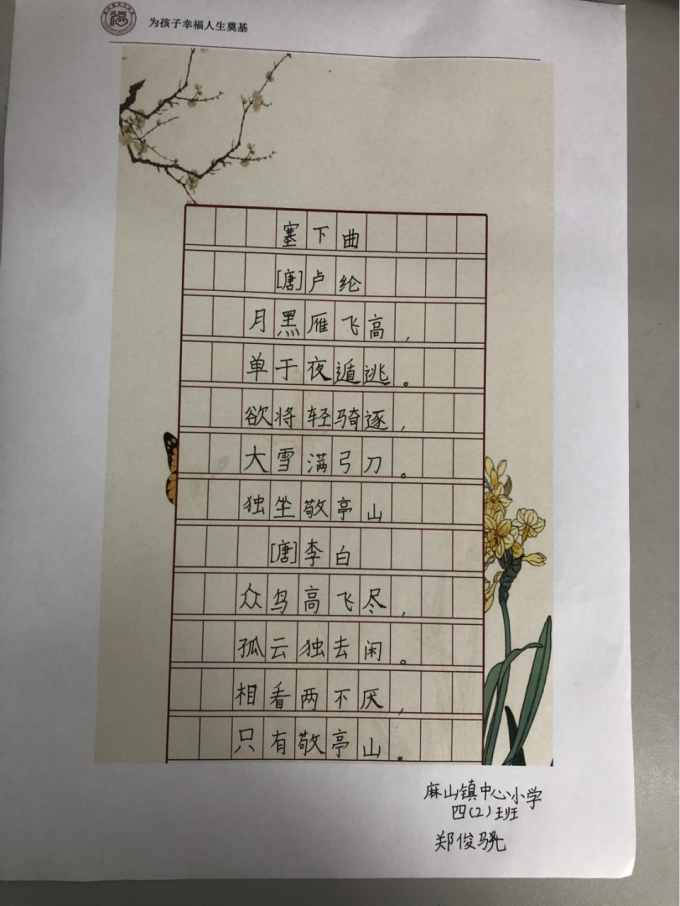 为孩子幸福人生奠基
塞下曲
[唐]卢纶
月黑雁飞高，
单于夜遁逃。
欲将轻骑逐，
大雪满弓刀。
独坐敬亭山
[唐]李白
众鸟高飞尽，
孤云独去闲。
相看两不厌，
只有敬亭山。
麻山镇中心小学
四(2)班
郑俊骁